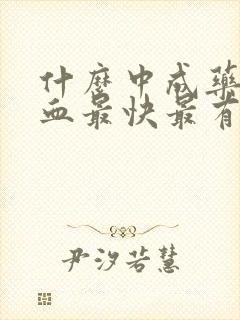 什麼中成藥
血最快最有
尹汐若慧